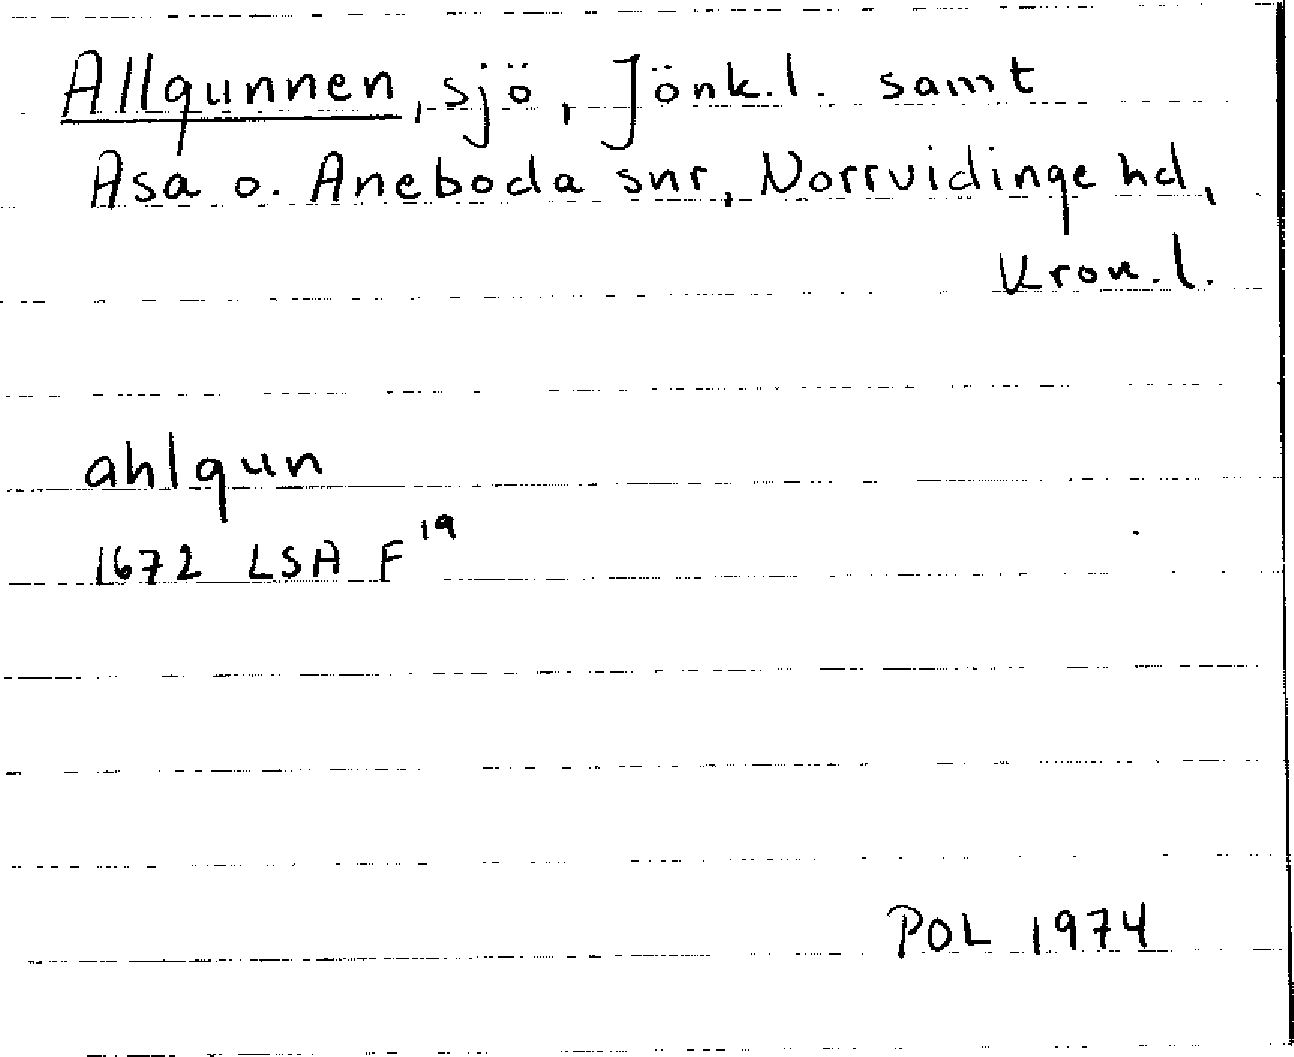 Allgunnen, sjö, Jönk.l. samt
Asa o. Aneboda snr, Norrvidinge hd,
Kron.l.
ahlgun
1672 LSA F 19
POL 1974